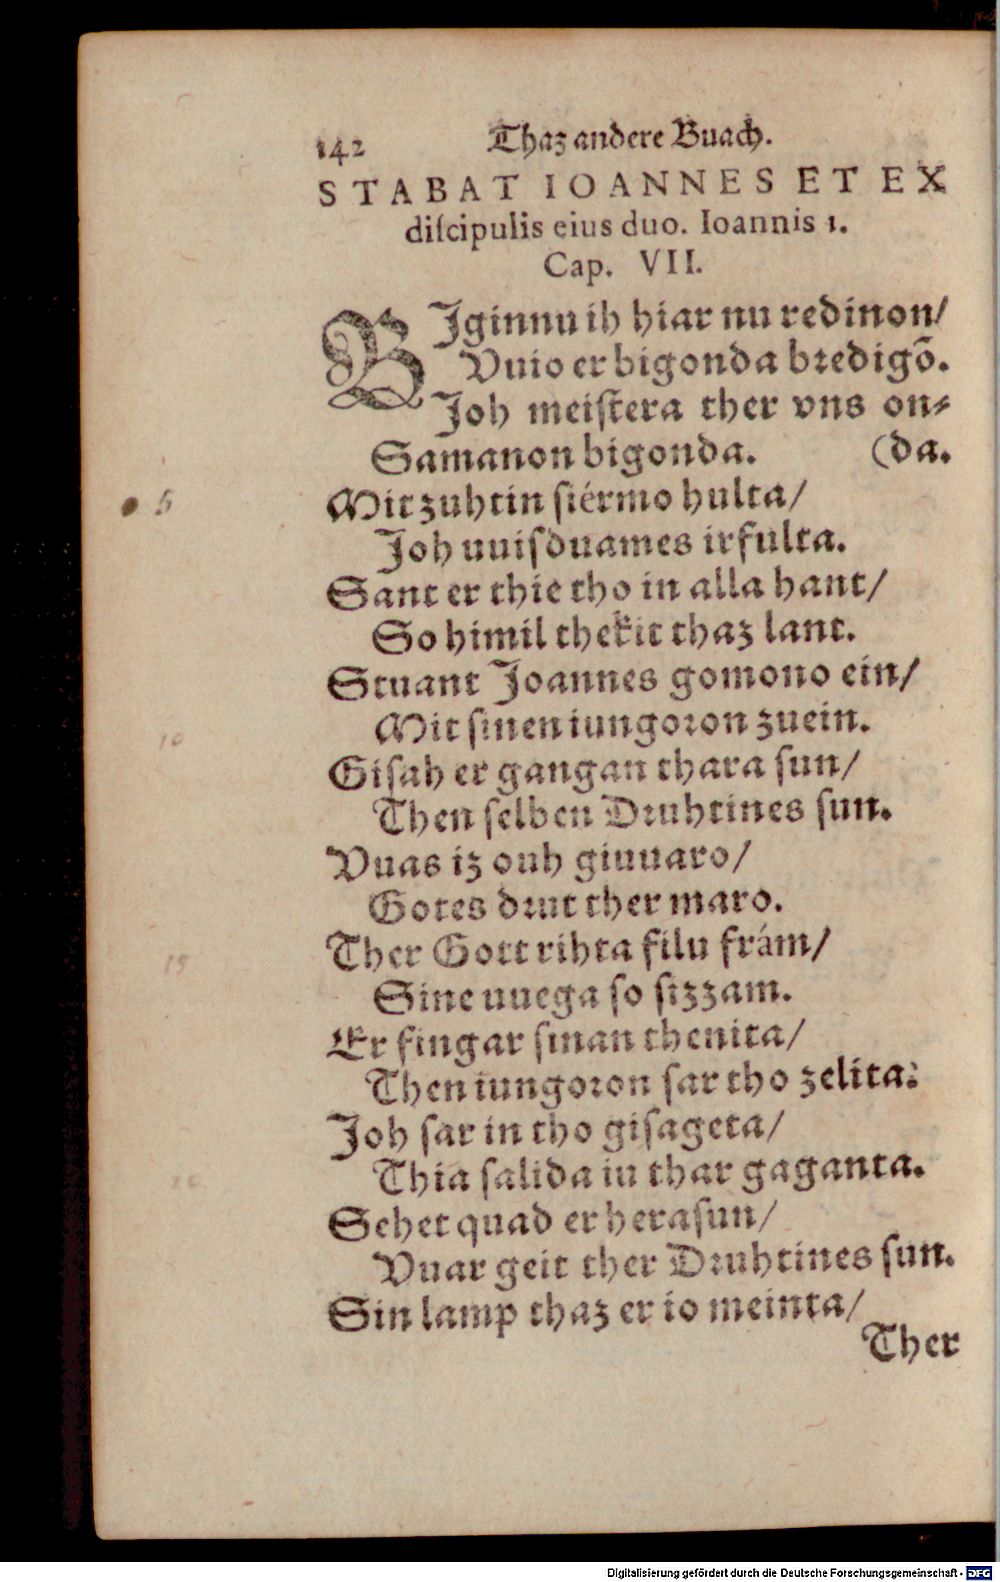 142 Thaz andere Buach.
STABAT IOANNES ET EX
diſcipulis eius duo. Ioannis 1.
Cap. VII.
BIginnu ih hiar nu redinon/
Vuio er bigonda bredigō.
Joh meiſtera ther vns on-
Samanon bigonda. (da.
5
Mit zuhtin ſiérmo hulta/
Joh uuiſduames irfulta.
Sant er thie tho in alla hant/
So himil thekit thaz lant.
Stuant Joannes gomono ein/
10
Mit ſinen iungoron zuein.
Giſah er gangan thara ſun/
Then ſelben Druhtines ſun.
Vuas iz ouh giuuaro/
Gotes drut ther maro.
15
Ther Gott rihta filu frám/
Sine uuega ſo ſizzam.
Er fingar ſinan thenita/
Then iungoron ſar tho zelita:
Joh ſar in tho giſageta/
20
Thia ſalida iu thar gaganta.
Sehet quad er heraſun/
Vuar geit ther Druhtines ſun.
Sin lamp thaz er io meinta/
Ther
Digitalisierung gefördert durch die Deutsche Forschungsgemeinschaft - DFG